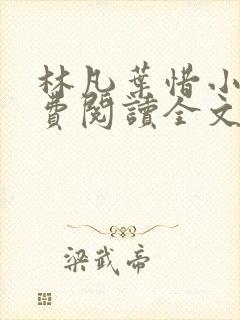 林凡葉惜小
費閱讀全文
梁武帝